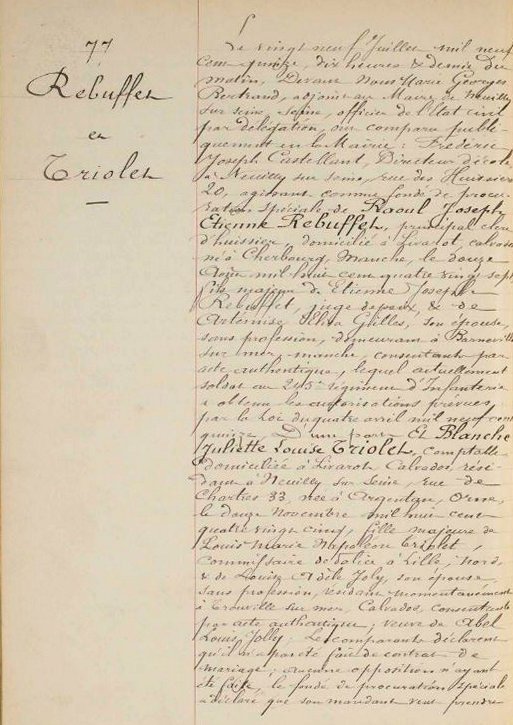 77
Rebuffet
et
Triolet
Le vingt neuf Juillet mil neuf
cent quinze, dix heures & demie du
matin, Devant Nous Marie Georges
Bertrand, adjoint au Maire de Neuilly
sur seine, Seine, officier de l'Etat civil
par délégation, ont comparu publi-
quement en la Mairie : Frédéric
Joseph Castellant, Directeur d'école
à Neuilly sur seine, rue des Huissiers
20, agissant comme fondé de procu-
ration spéciale de Raoul Joseph
Etienne Rebuffet, principal clerc
d'huissier, domicilié à Livarot, calvados
né à Cherbourg, Manche, le douze
Août mil huit cent quatre vingt sept
fils majeur de Etienne Joseph
Rebuffet, juge de paix, & de
Artémise Gilles, son épouse,
sans profession, demeurant à Barneville
sur mer, manche, consentants par
acte authentique, lequel actuellement
soldat au 245e régiment d'Infanterie
a obtenu les autorisations prévues
par la Loi du quatre avril mil neuf cent
quinze D'une part. Et Blanche
Juliette Louise Triolet, comptable
domiciliée à Livarot Calvados, rési-
dant à Neuilly sur Seine, rue de
Chartres 33, née à Argentan, Orne,
le douze Novembre mil huit cent
quatre vingt cinq, fille majeure de
Louis Marie Napoléon Triolet,
commissaire de police à Lille, Nord,
& de Louise Adèle Joly, son épouse,
sans profession, résidant momentanément
à Trouville sur mer, Calvados, consentants
par acte authentique ; veuve de Abel
Louis Jolly. Les comparants déclarent
qu'il n'a pas été fait de contrat de
mariage ; aucune opposition n'ayant
été faite, le fondé de procuration spéciale
a déclaré que son mandant veut prendre